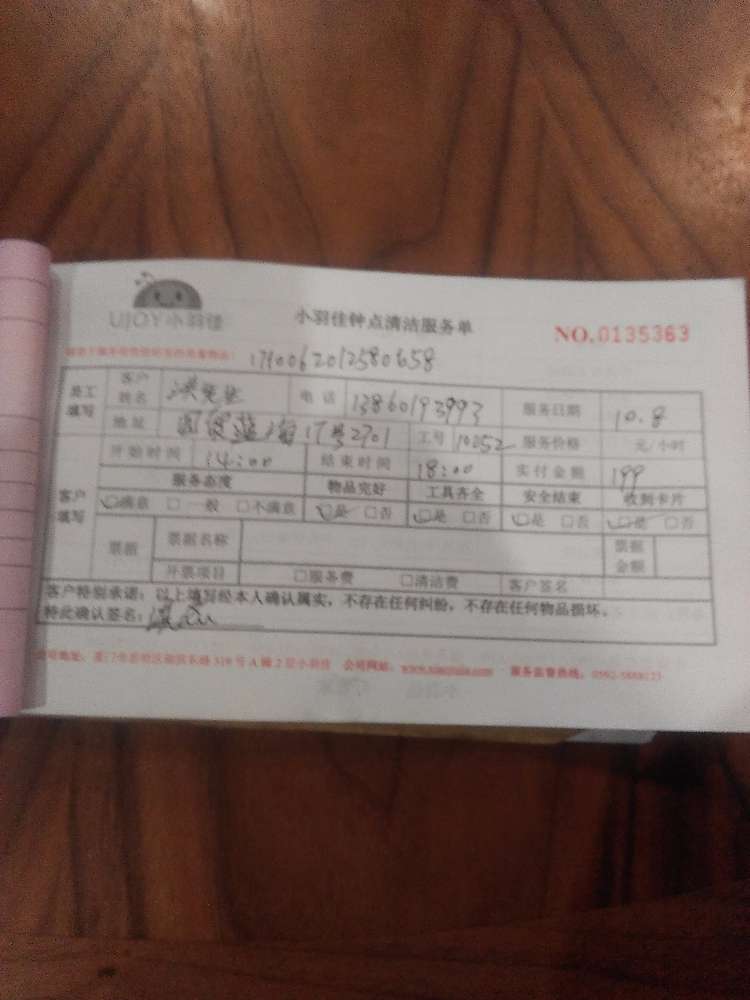 UJOY小羽佳
小羽佳钟点清洁服务单
NO.0135363
1790062012580658
员工填写
客户姓名 洪先生 电话 13860193993 服务日期 10.8
地址 17号2701 工号 10052 服务价格 元/小时
开始时间 14:00 结束时间 18:00 实付金额 199
客户填写
服务态度 物品完好 工具齐全 安全结束 收到卡片
☑满意 □一般 □不满意 ☑是 □否 ☑是 □否 ☑是 □否 ☑是 □否
票据 票据名称 票据金额
开票项目 □服务费 □清洁费 客户签名
客户特别承诺：以上填写经本人确认属实，不存在任何纠纷，不存在任何物品损坏。
特此确认签名：
公司地址： 319号A幢2层小羽佳 公司网站： 服务监督热线：